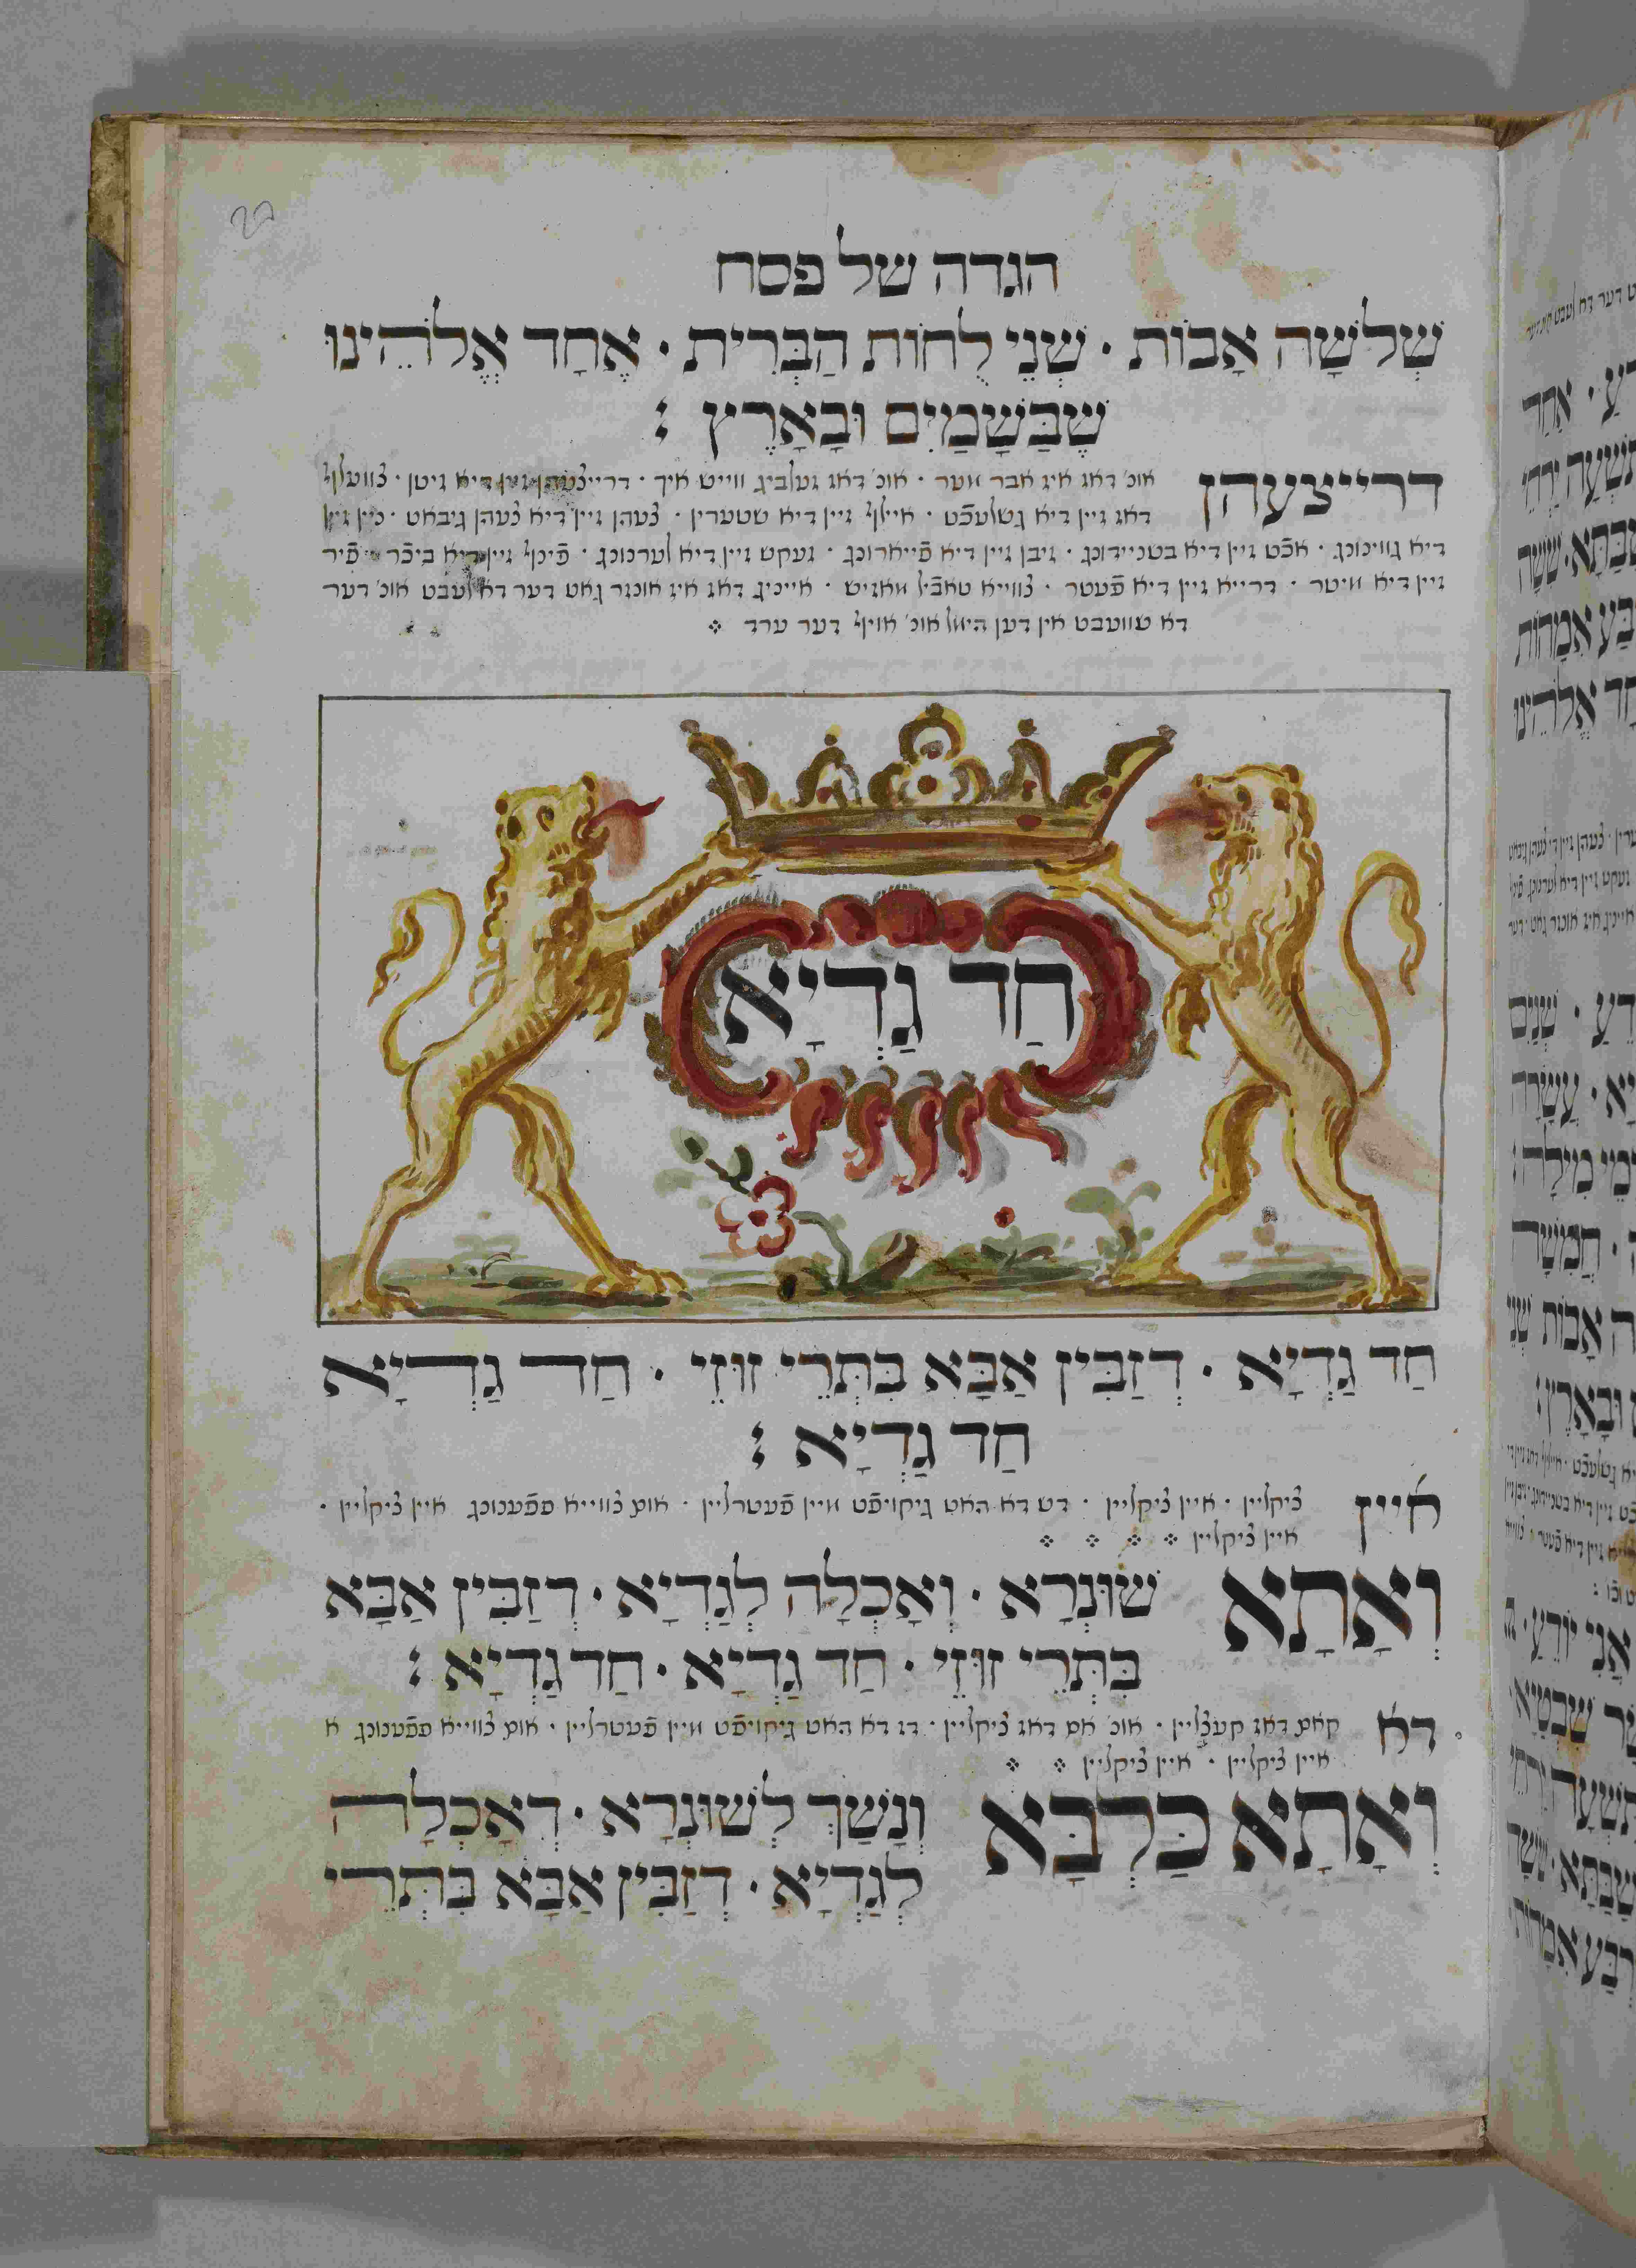 הגדה של פסח
שְׁלשָׁה אָבוֹת · שְׁנֵי לֻחוֹת הַבְּרִית · אֶחָד אֱלֹהֵינוּ
שֶׁבַּשָּׁמַיִם וּבָאָרֶץ :
דרייצעהן אונ' דאז איז אבר מער · אונ' דאז זעלביג ווייש איך · דרייצעהן זיין דיא זיטן · צוועלף
דאז זיין דיא גשלעכט · איילף זיין דיא שטערין · צעהן זיין דיא צעהן גיבאט · ניין זיין
דיא גווינונג · אכט זיין דיא בשניידונג · זיבן זיין דיא פייארונג · זעקש זיין דיא לערנונג · פינף זיין דיא ביכר · פיר
זיין דיא מיטר · דרייא זיין דיא פעטר · צווייא טאבֿיל מאזיש · אייניג דאז איז אונזר גאט דער דא לעבט אונ' דער
דא שוועבט אין דען הימל אונ' אויף דער ערד
חַד גַּדְיָא
חַד גַּדְיָא · דְזַבִּין אַבָּא בִּתְּרֵי זוּזֵי · חַד גַּדְיָא
חַד גַּדְיָא :
איין ציקליין · איין ציקליין · דש דא האט גיקויפט מיין פעטרליין · אום צווייא פפענונג איין ציקליין ·
איין ציקליין
וְאָתָא שׁוּנְרָא · וְאָכְלָה לְגַדְיָא · דְזַבִּין אַבָּא
בִּתְּרֵי זוּזֵי · חַד גַּדְיָא · חַד גַּדְיָא :
דא קאם דאז קעצליין · אונ' אס דאז ציקליין · דז דא האט גיקויפט מיין פעטרליין · אום צווייא פפענונג א
איין ציקליין · איין ציקליין
וְאָתָא כַּלְבָּא וְנָשַׁךְ לְשׁוּנְרָא · דְאָכְלָה
לְגַדְיָא · דְזַבִּין אַבָּא בִּתְּרֵי